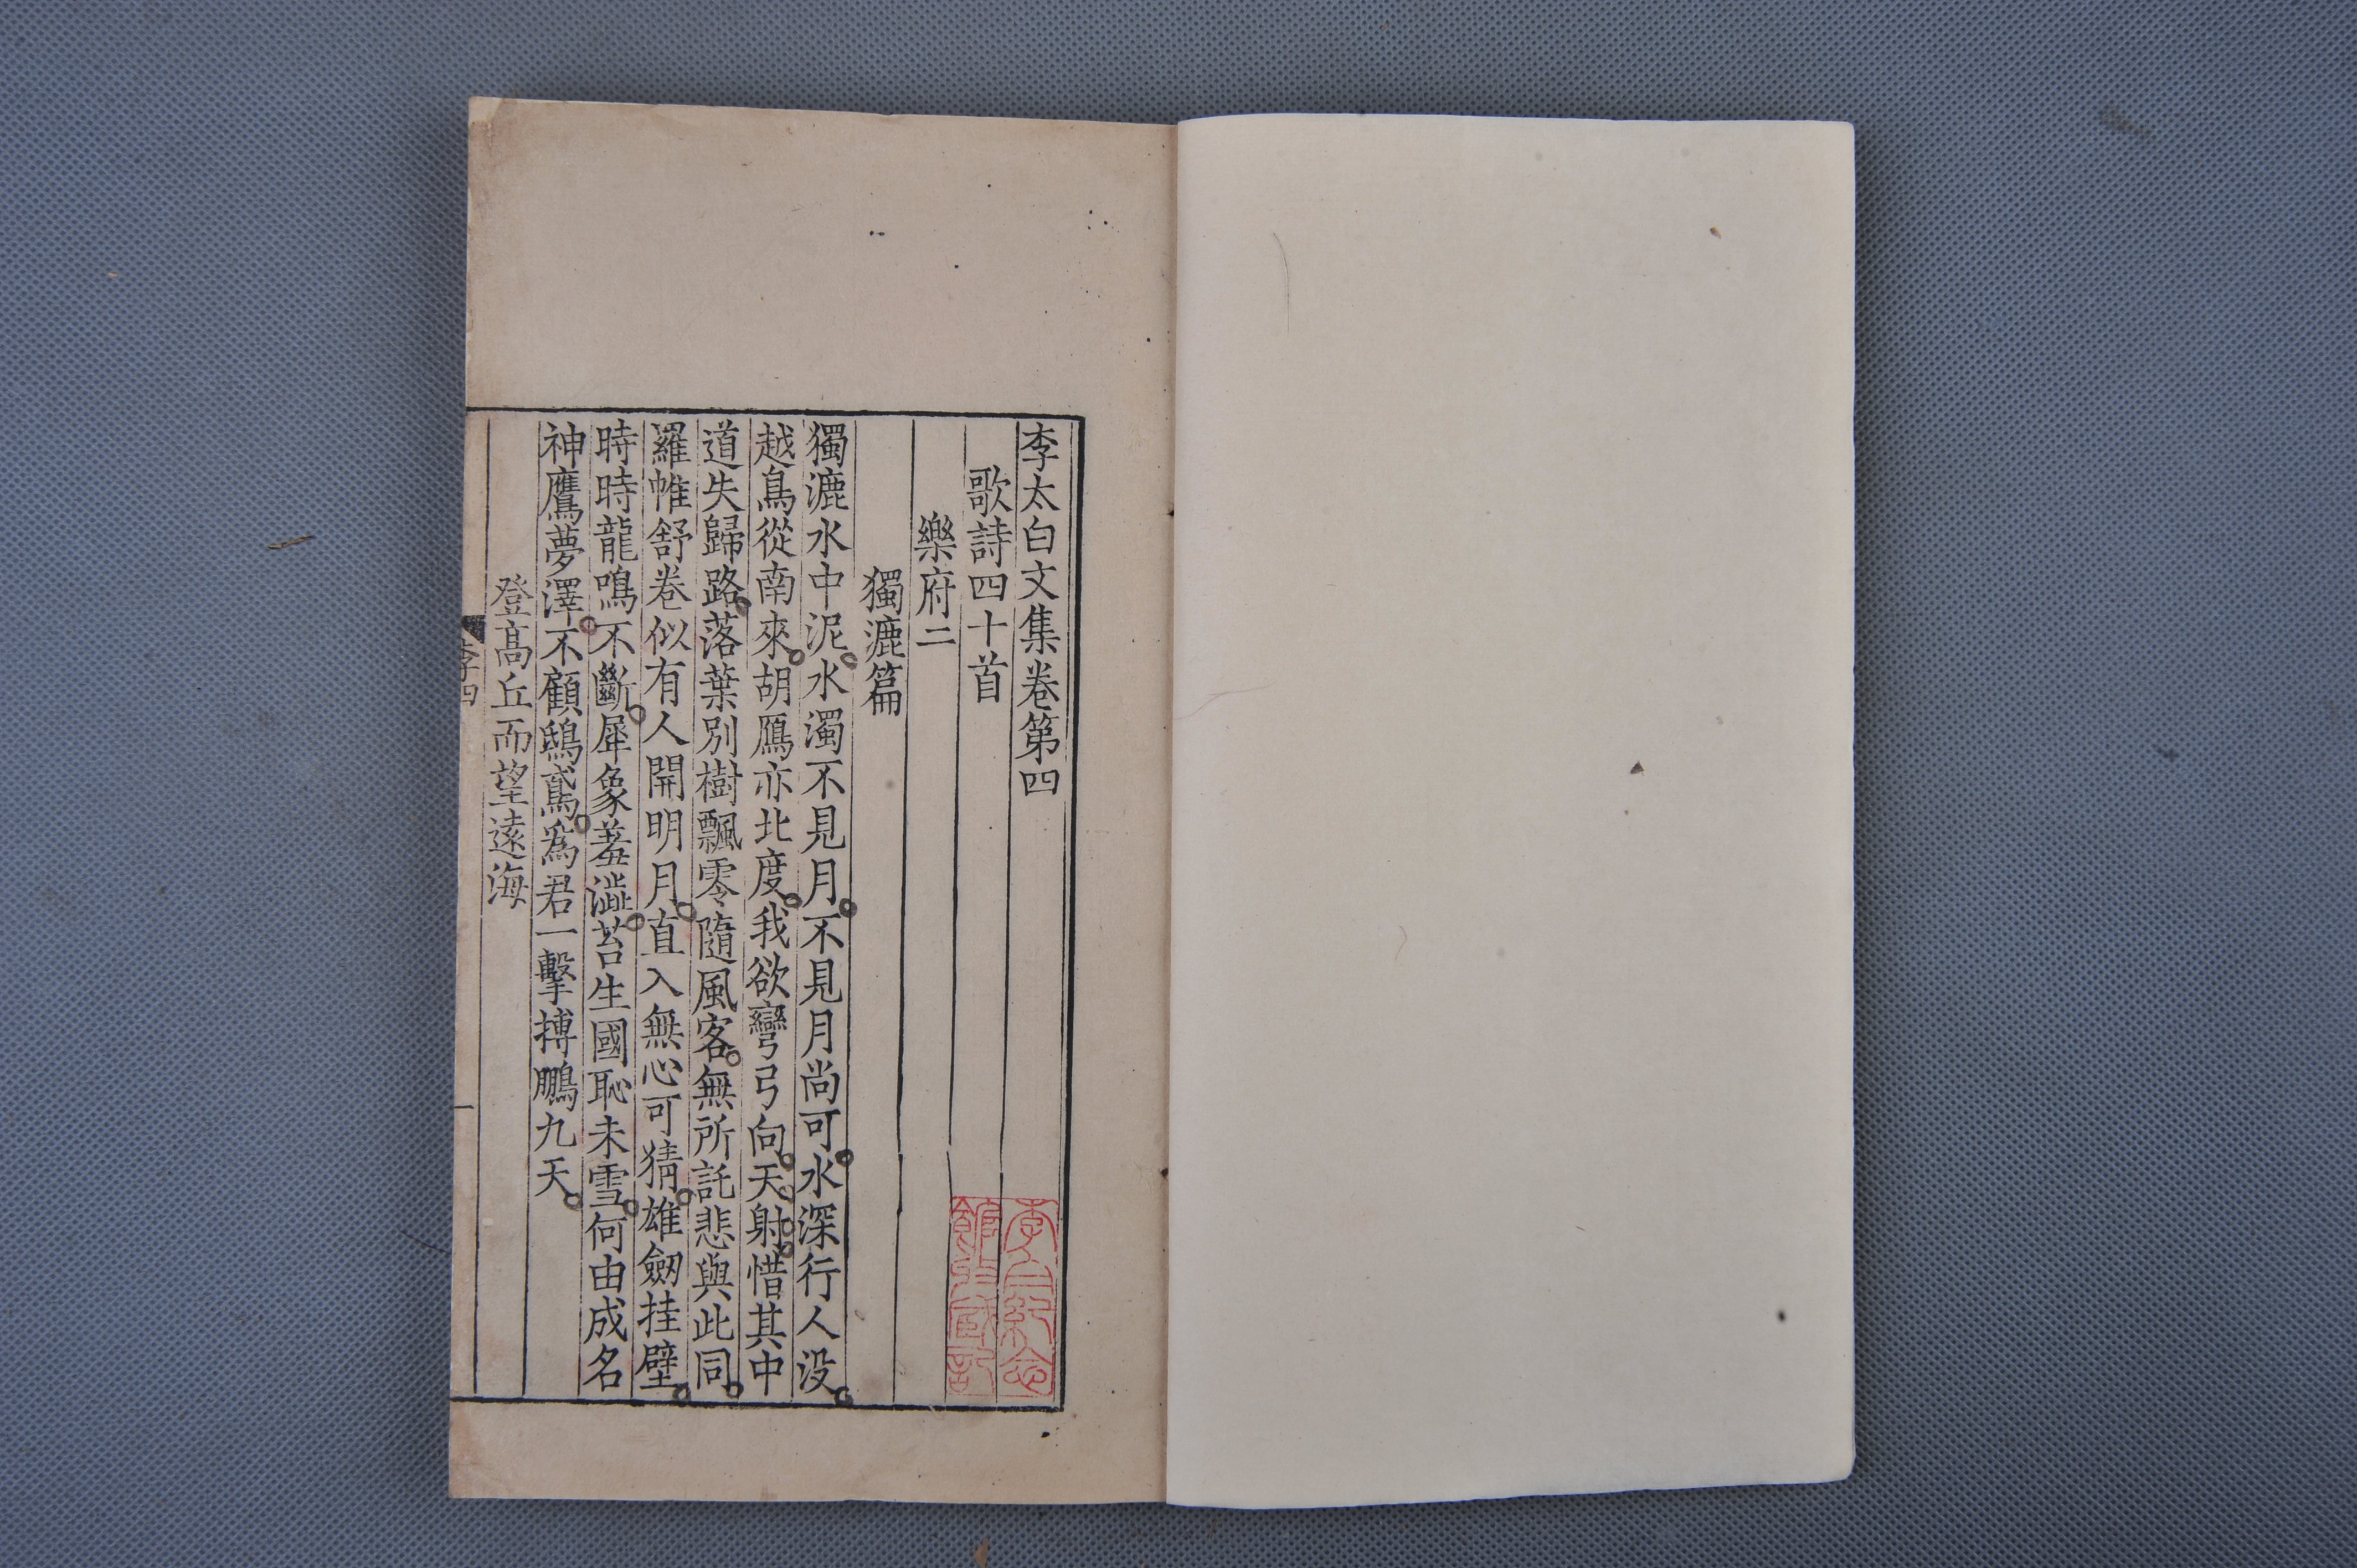 李太白文集卷第四
歌詩四十首
樂府二
獨漉篇
獨漉水中泥水濁不見月不見月尚可水深行人没
越鳥從南來胡鴈亦北度我欲彎弓向天射惜其中
道失歸路落葉別樹飄零隨風客無所託悲與此同
羅帷舒卷似有人開明月直入無心可猜雄劒挂壁
時時龍鳴不斷犀象羞澁苔生國恥未雪何由成名
神鷹夢澤不顧鴟鳶爲君一擊搏鵬九天
登髙丘而望遠海
李四
一
李白紀念
館珍藏記